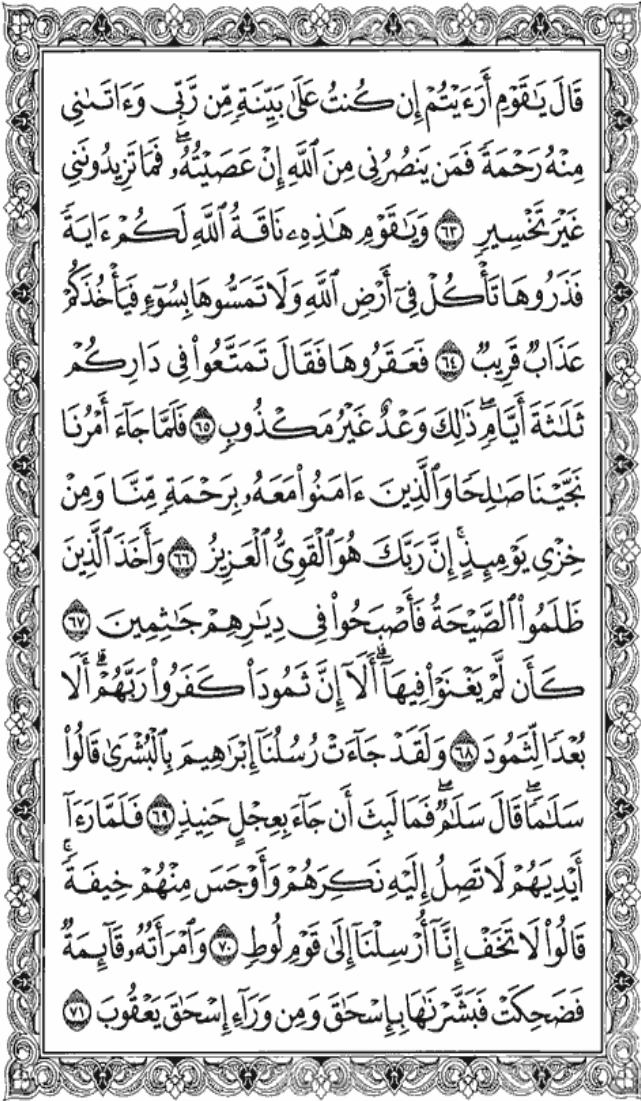 قَالَ يَٰقَوْمِ أَرَءَيْتُمْ إِن كُنتُ عَلَىٰ بَيِّنَةٍ مِّن رَّبِّى وَءَاتَىٰنِى
مِنْهُ رَحْمَةً فَمَن يَنصُرُنِى مِنَ ٱللَّهِ إِنْ عَصَيْتُهُۥۖ فَمَا تَزِيدُونَنِى
غَيْرَ تَخْسِيرٍ ٦٣ وَيَٰقَوْمِ هَٰذِهِۦ نَاقَةُ ٱللَّهِ لَكُمْ ءَايَةً
فَذَرُوهَا تَأْكُلْ فِىٓ أَرْضِ ٱللَّهِ وَلَا تَمَسُّوهَا بِسُوٓءٍ فَيَأْخُذَكُمْ
عَذَابٌ قَرِيبٌ ٦٤ فَعَقَرُوهَا فَقَالَ تَمَتَّعُوا۟ فِى دَارِكُمْ
ثَلَٰثَةَ أَيَّامٍۖ ذَٰلِكَ وَعْدٌ غَيْرُ مَكْذُوبٍ ٦٥ فَلَمَّا جَآءَ أَمْرُنَا
نَجَّيْنَا صَٰلِحًا وَٱلَّذِينَ ءَامَنُوا۟ مَعَهُۥ بِرَحْمَةٍ مِّنَّا وَمِنْ
خِزْىِ يَوْمِئِذٍۚ إِنَّ رَبَّكَ هُوَ ٱلْقَوِىُّ ٱلْعَزِيزُ ٦٦ وَأَخَذَ ٱلَّذِينَ
ظَلَمُوا۟ ٱلصَّيْحَةُ فَأَصْبَحُوا۟ فِى دِيَٰرِهِمْ جَٰثِمِينَ ٦٧
كَأَن لَّمْ يَغْنَوْا۟ فِيهَآۗ أَلَآ إِنَّ ثَمُودَا۟ كَفَرُوا۟ رَبَّهُمْۗ أَلَا
بُعْدًا لِّثَمُودَ ٦٨ وَلَقَدْ جَآءَتْ رُسُلُنَآ إِبْرَٰهِيمَ بِٱلْبُشْرَىٰ قَالُوا۟
سَلَٰمًاۖ قَالَ سَلَٰمٌۖ فَمَا لَبِثَ أَن جَآءَ بِعِجْلٍ حَنِيذٍ ٦٩ فَلَمَّا رَءَآ
أَيْدِيَهُمْ لَا تَصِلُ إِلَيْهِ نَكِرَهُمْ وَأَوْجَسَ مِنْهُمْ خِيفَةًۚ
قَالُوا۟ لَا تَخَفْ إِنَّآ أُرْسِلْنَآ إِلَىٰ قَوْمِ لُوطٍ ٧٠ وَٱمْرَأَتُهُۥ قَآئِمَةٌ
فَضَحِكَتْ فَبَشَّرْنَٰهَا بِإِسْحَٰقَ وَمِن وَرَآءِ إِسْحَٰقَ يَعْقُوبَ ٧١